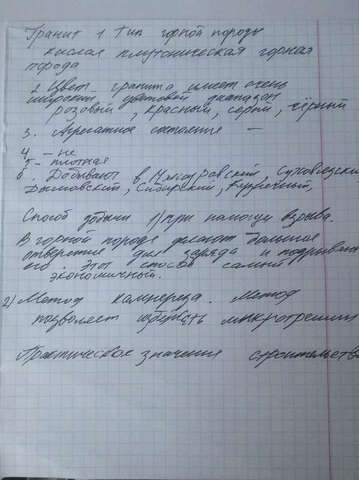 Гранит 1 Тип горной породы
кислая плутоническая горная
порода
2. Цвет гранита имеет очень
широкий цветовой диапазон
розовый, красный, серый, чёрный
3. Агрегатное состояние —
4 — не
5 — плотная
6. Добывают в Сибирский,
Способ добычи 1) при помощи взрыва.
В горной породе делают большие
отверстия для заряда и подрывают
его. Этот способ самый
экономичный.
2) Метод камнереза. Метод
позволяет избежать микротрещин
Практическое значения строительство